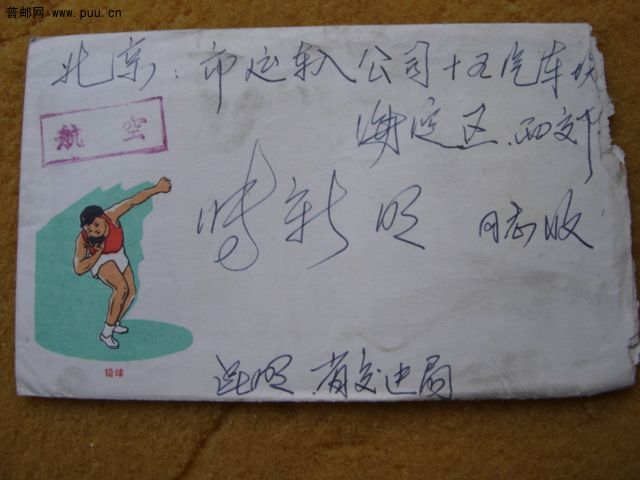 普邮网 www.puu.cn
北京：市运输公司十五汽车
海淀区.西郊
航 空
新明 同志收
铅球
昆明.省交通局